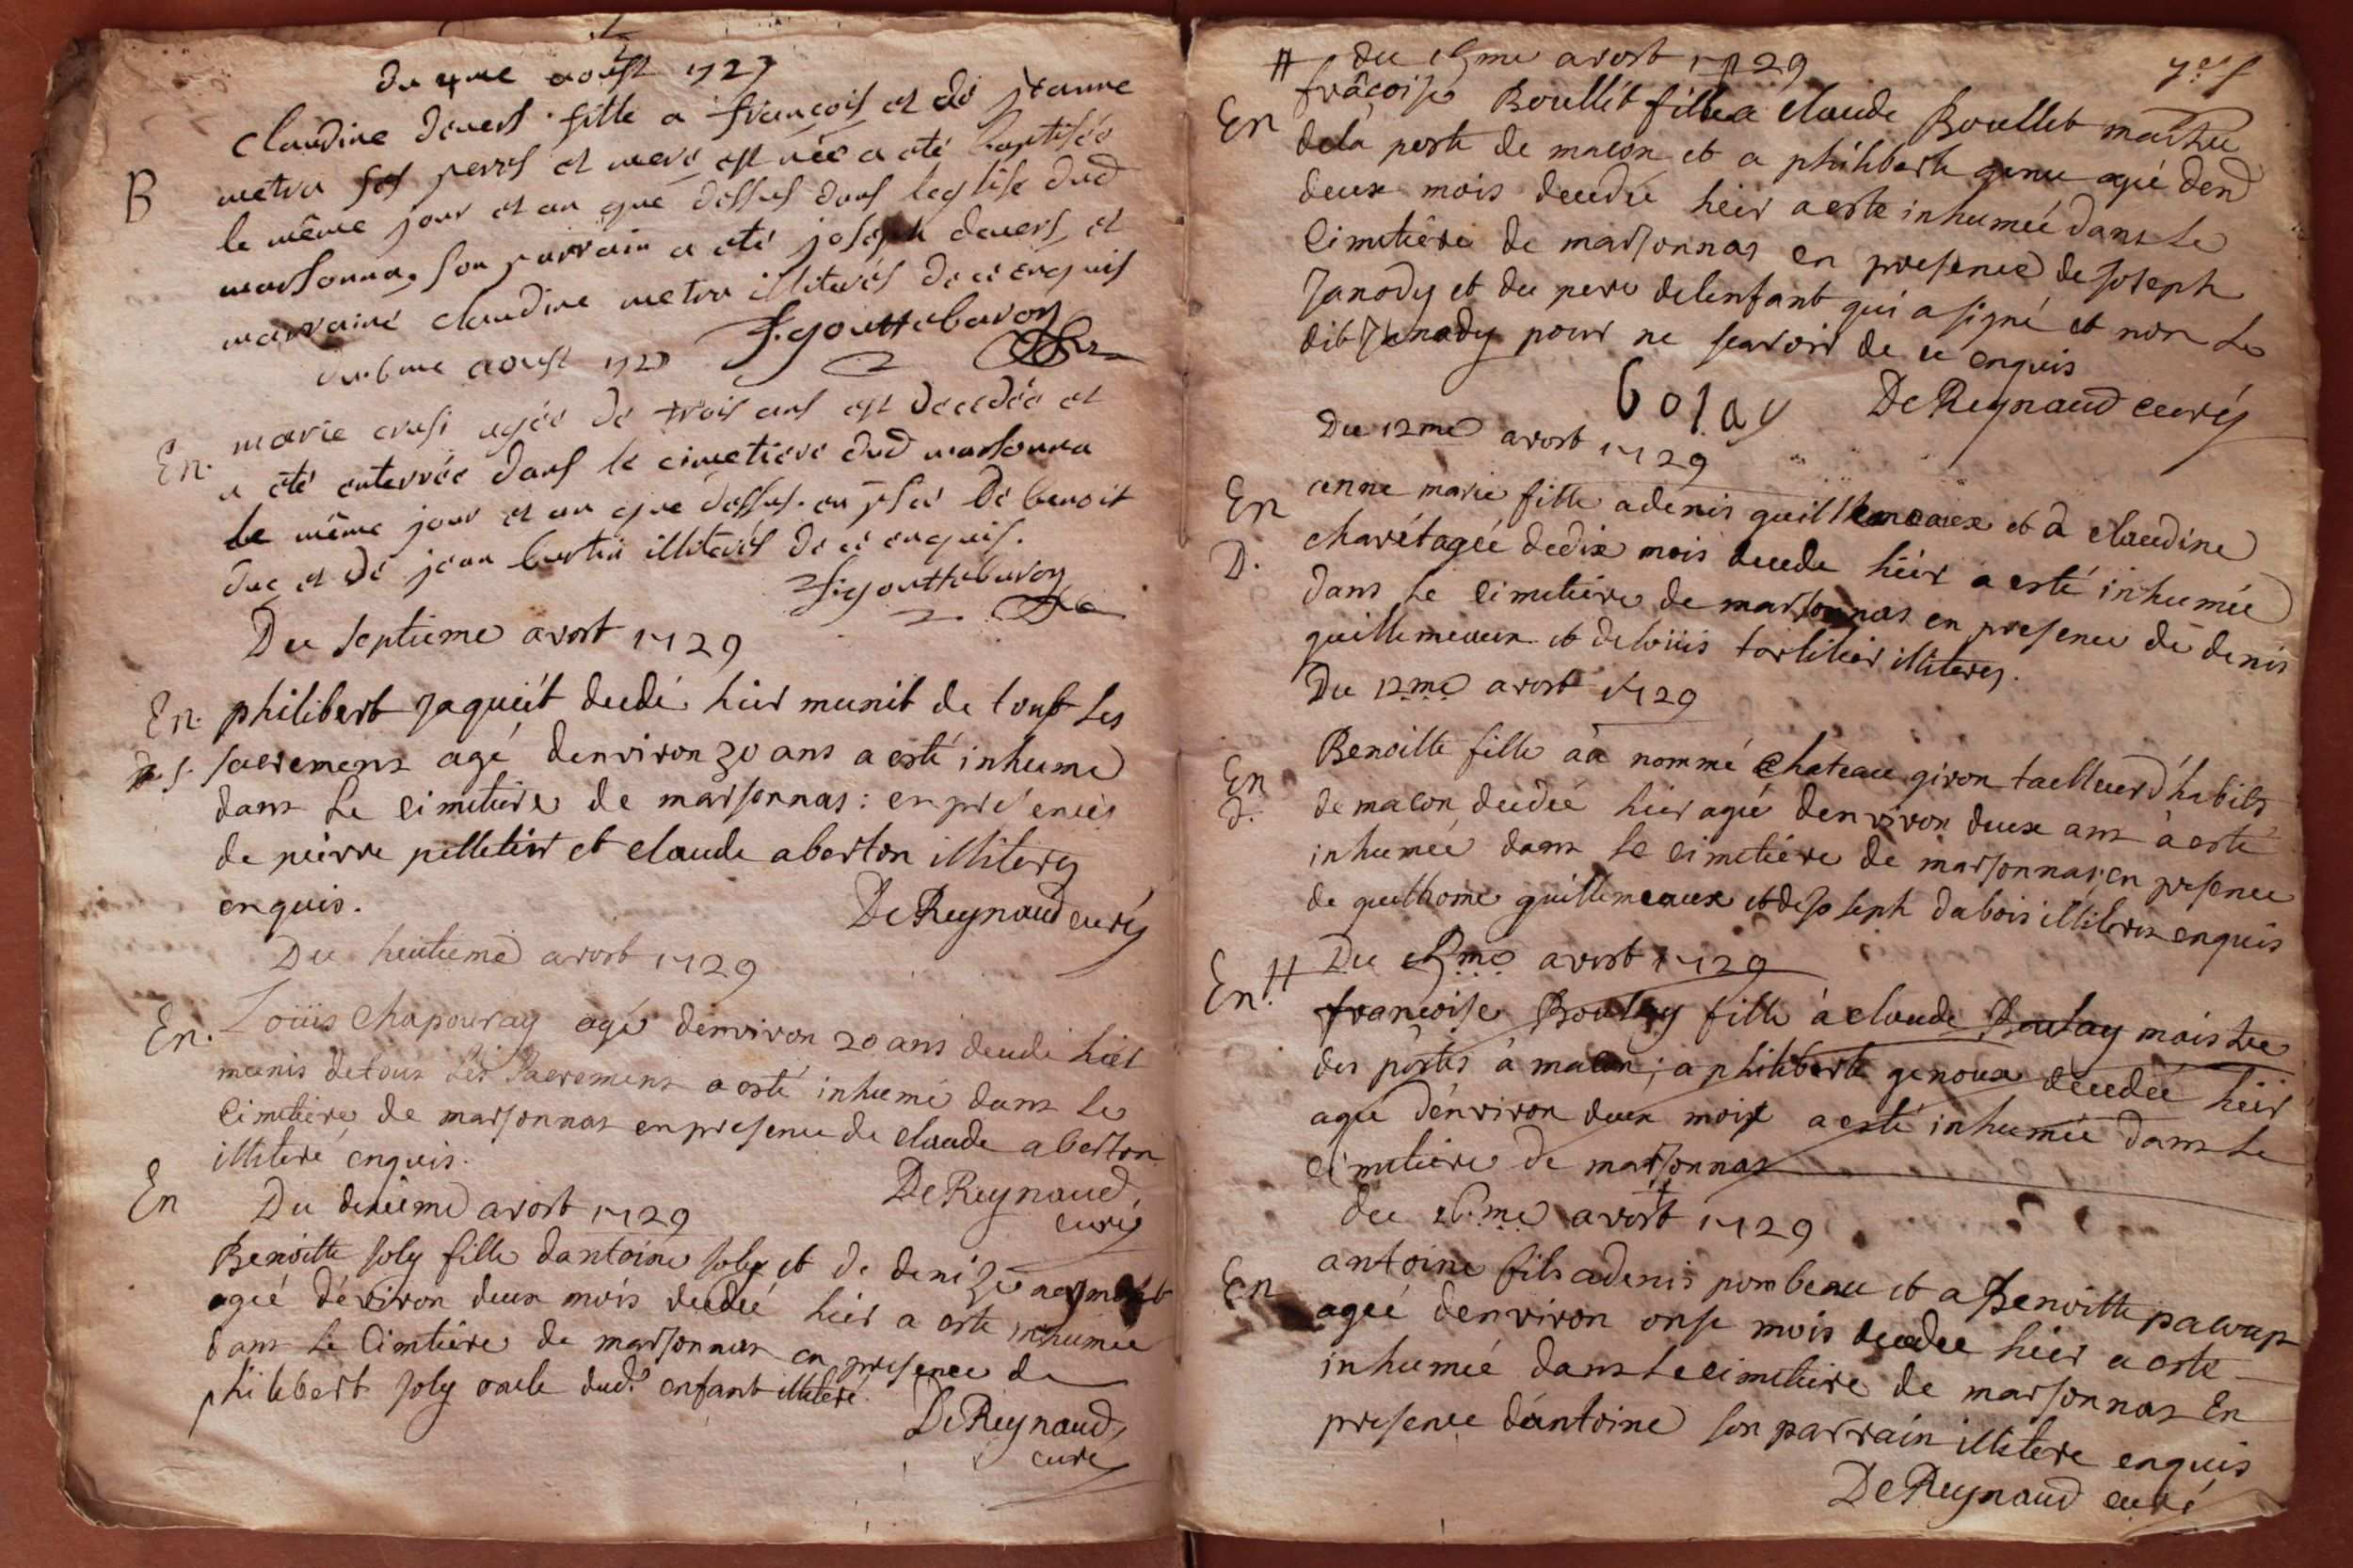 du 4me aoust 1729
claudine devers fille a françois et de jeanne
metra ses peres et mere est née a été baptisée
B le même jour et an que dessus dans leglise dud
marsonna. son parrain a été joseph devers et
marraine claudine metra illiterés de ce enquis
f. gouttebaron
du 6me aoust 1729
En. marie crusi agée de trois ans est decedée et
a été enterrée dans le cimetiere dud marsonna
le même jour et an que dessus. en psce De benoit
duc et de jean bertin illiterés de ce enquis.
f. gouttebaron
Du septieme avost 1729
En. philibert Jaquiét decdé hier munit de toust les
s. sacremens agé denviron 30 ans a esté inhumé
dans le cimetiere de marsonnas : en présences
de peirre pelletier et claude aberton illiterez
enquis.
De Reynaud curéz
Du heutieme avost 1729
En. Louis Chapouray agé denviron 20 ans decedé hier
munis de tous les Sacremens a esté inhumé dans le
cimetiere de marsonnas en presence de claude aberton
illiteré enquis.
De Reynaud,
curéz
En Du dixieme avost 1729
Benoitte Joly fille dantoine Joly et de denize
agée dénviron deux mois decedée hier a este inhumée
dans le cimetiere de marsonnas en presence de
philibert Joly oncle dud. enfant illiteré.
De Reynaud,
curé
# du 15me avost 1729
En frãcoise Boullét fille a claude Boullet maitre
dela poste de macon et a philiberte genu agée dend
deux mois decedée hier a este inhumée dans le
cimetiére de marsonnas en presence de Joseph
Janody et du pere delenfant qui a signé et non le
dit Janody pour ne scavoir de ce enquis
bolay De Reynaud curéz
Du 12me avost 1729
En anne marie fille a denis guillemeaux et a claudine
D. charét agée dedix mois decede hier a esté inhumée
dans le cimetiere de marsonnas en presence de denis
guillemeaux et de loüis tortilier illiterez.
Du 12me avost 1729
En Benoitte fille àà nommé Chateau giron tailleur d'habits
d. de macon decdée hier agée denviron deux ans à esté
inhumée dans le cimetiére de marsonnas en presence
de guilhome guillemeaux et de Joseph dubois illiterez enquis
En. # Du 15me avost 1729
francoise Boulay fille à claude Boulay maistre
des postes à macon; a philiberte genoux decedée hier
agée dénviron deux mois a esté inhumée dans le
cimetiere de marsonnas
du 16me avost 1729
En antoine fils a denis pombeau et a Benoitte
agée denviron onse mois decedee hier a este
inhumée dans le cimetiere de marsonnas En
presence dántoine son parrain illitere enquis
De Reynaud curé